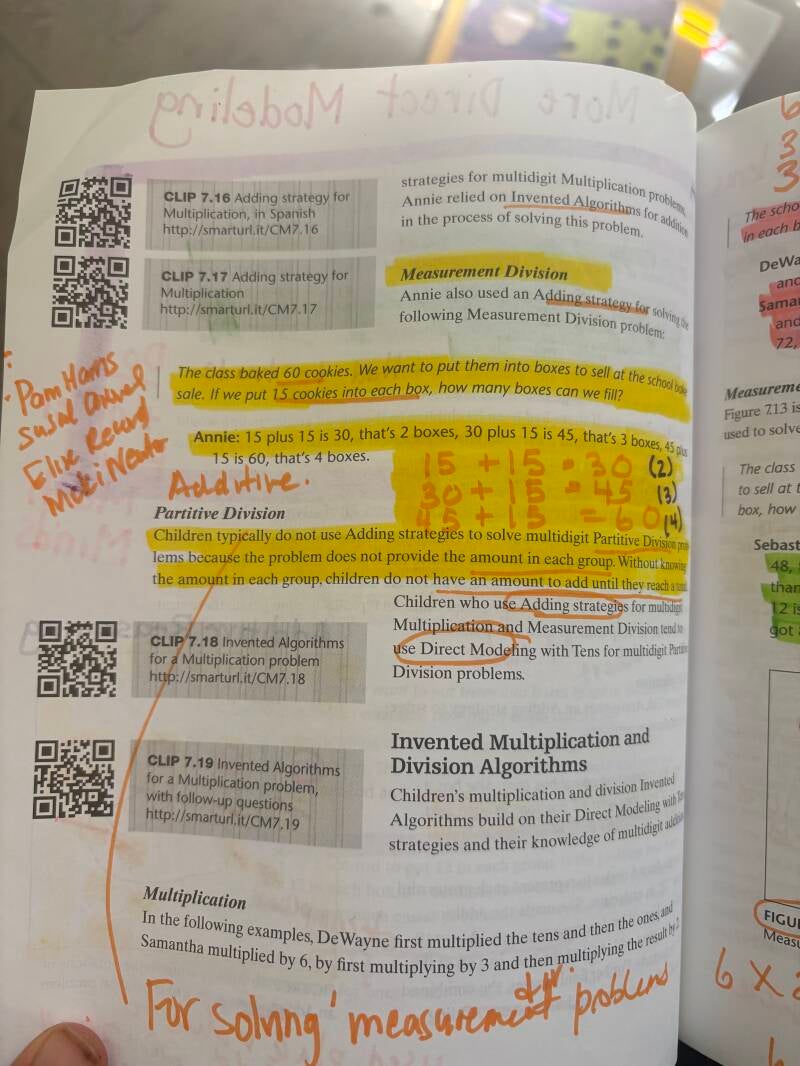 More Direct Modeling
CLIP 7.16 Adding strategy for
Multiplication, in Spanish
http://smarturl.it/CM7.16
CLIP 7.17 Adding strategy for
Multiplication
http://smarturl.it/CM7.17
strategies for multidigit Multiplication problems,
Annie relied on Invented Algorithms for addition
in the process of solving this problem.
Measurement Division
Annie also used an Adding strategy for solving the
following Measurement Division problem:
The class baked 60 cookies. We want to put them into boxes to sell at the school bake
sale. If we put 15 cookies into each box, how many boxes can we fill?
Pam Harris
Annie: 15 plus 15 is 30, that's 2 boxes, 30 plus 15 is 45, that's 3 boxes, 45 plus
15 is 60, that's 4 boxes.
15 + 15 = 30 (2)
30 + 15 = 45 (3)
45 + 15 = 60 (4)
Additive.
Partitive Division
Children typically do not use Adding strategies to solve multidigit Partitive Division prob
lems because the problem does not provide the amount in each group. Without knowing
the amount in each group, children do not have an amount to add until they reach a total.
Children who use Adding strategies for multidigit
Multiplication and Measurement Division tend to
use Direct Modeling with Tens for multidigit Partitive
Division problems.
CLIP 7.18 Invented Algorithms
for a Multiplication problem
http://smarturl.it/CM7.18
CLIP 7.19 Invented Algorithms
for a Multiplication problem,
with follow-up questions
http://smarturl.it/CM7.19
Invented Multiplication and
Division Algorithms
Children's multiplication and division Invented
Algorithms build on their Direct Modeling with Tens
strategies and their knowledge of multidigit addition
Multiplication
In the following examples, DeWayne first multiplied the tens and then the ones, and
Samantha multiplied by 6, by first multiplying by 3 and then multiplying the result by 2.
For solving measurement div. problems
6
3
3
The scho
in each b
DeWa
and
Samar
and
72,
Measureme
Figure 7.13 is
used to solve
The class
to sell at t
box, how
Sebast
48,
than
12 is
got
FIGU
Measu
6 x 2
6